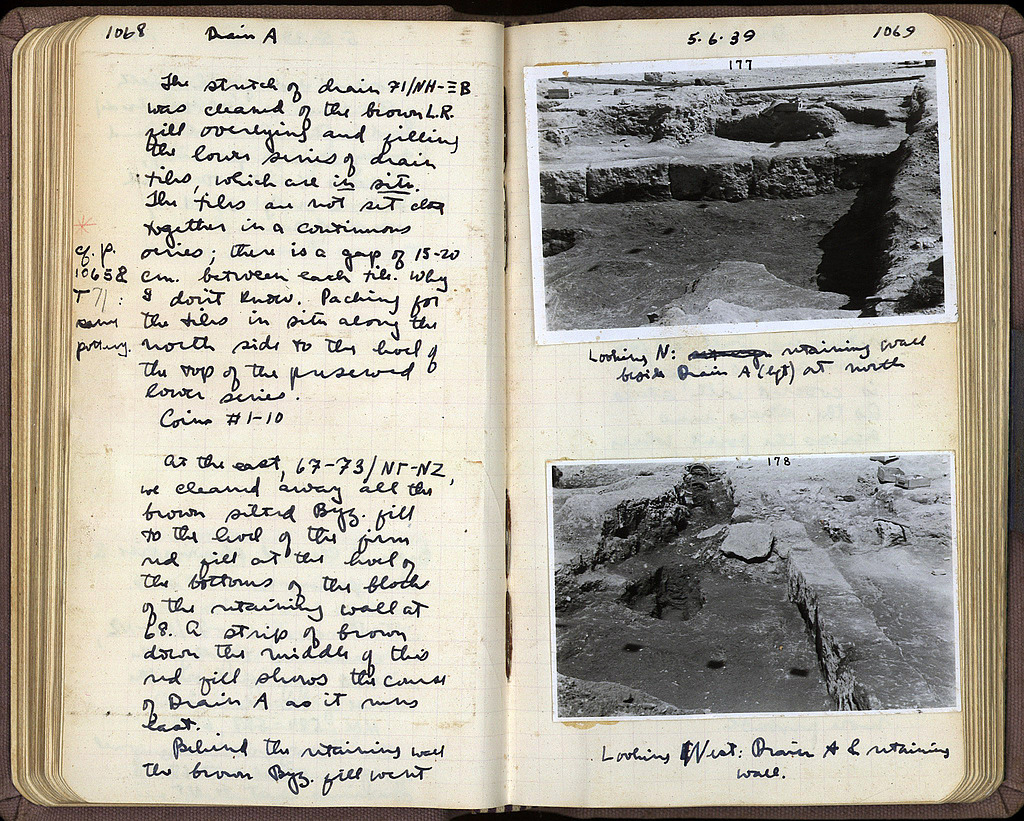 1068 Drain A
The stretch of drain 71/ΝΗ-ΞΒ
was cleaned of the brown L.R.
fill overlying and filling
the lower series of drain
tiles, which are in situ.
The tiles are not set close
together in a continuous
series; there is a gap of 15-20
cm. between each tile. Why
I don't know. Packing for
the tiles in situ along the
north side to the level of
the top of the preserved
lower series.
Coins #1-10
cf. p.
1065 &
T 71:
same
pottery.
At the east, 67-73/ΝΓ-ΝΖ,
we cleaned away all the
brown silted Byz. fill
to the level of the firm
red fill at the level of
the bottoms of the blocks
of the retaining wall at
68. A strip of brown
down the middle of this
red fill shows the course
of Drain A as it runs
east.
Behind the retaining wall
the brown Byz. fill went
5.6.39 1069
177
Looking N: retaining wall
beside Drain A (left) at north
178
Looking West. Drain A & retaining
wall.